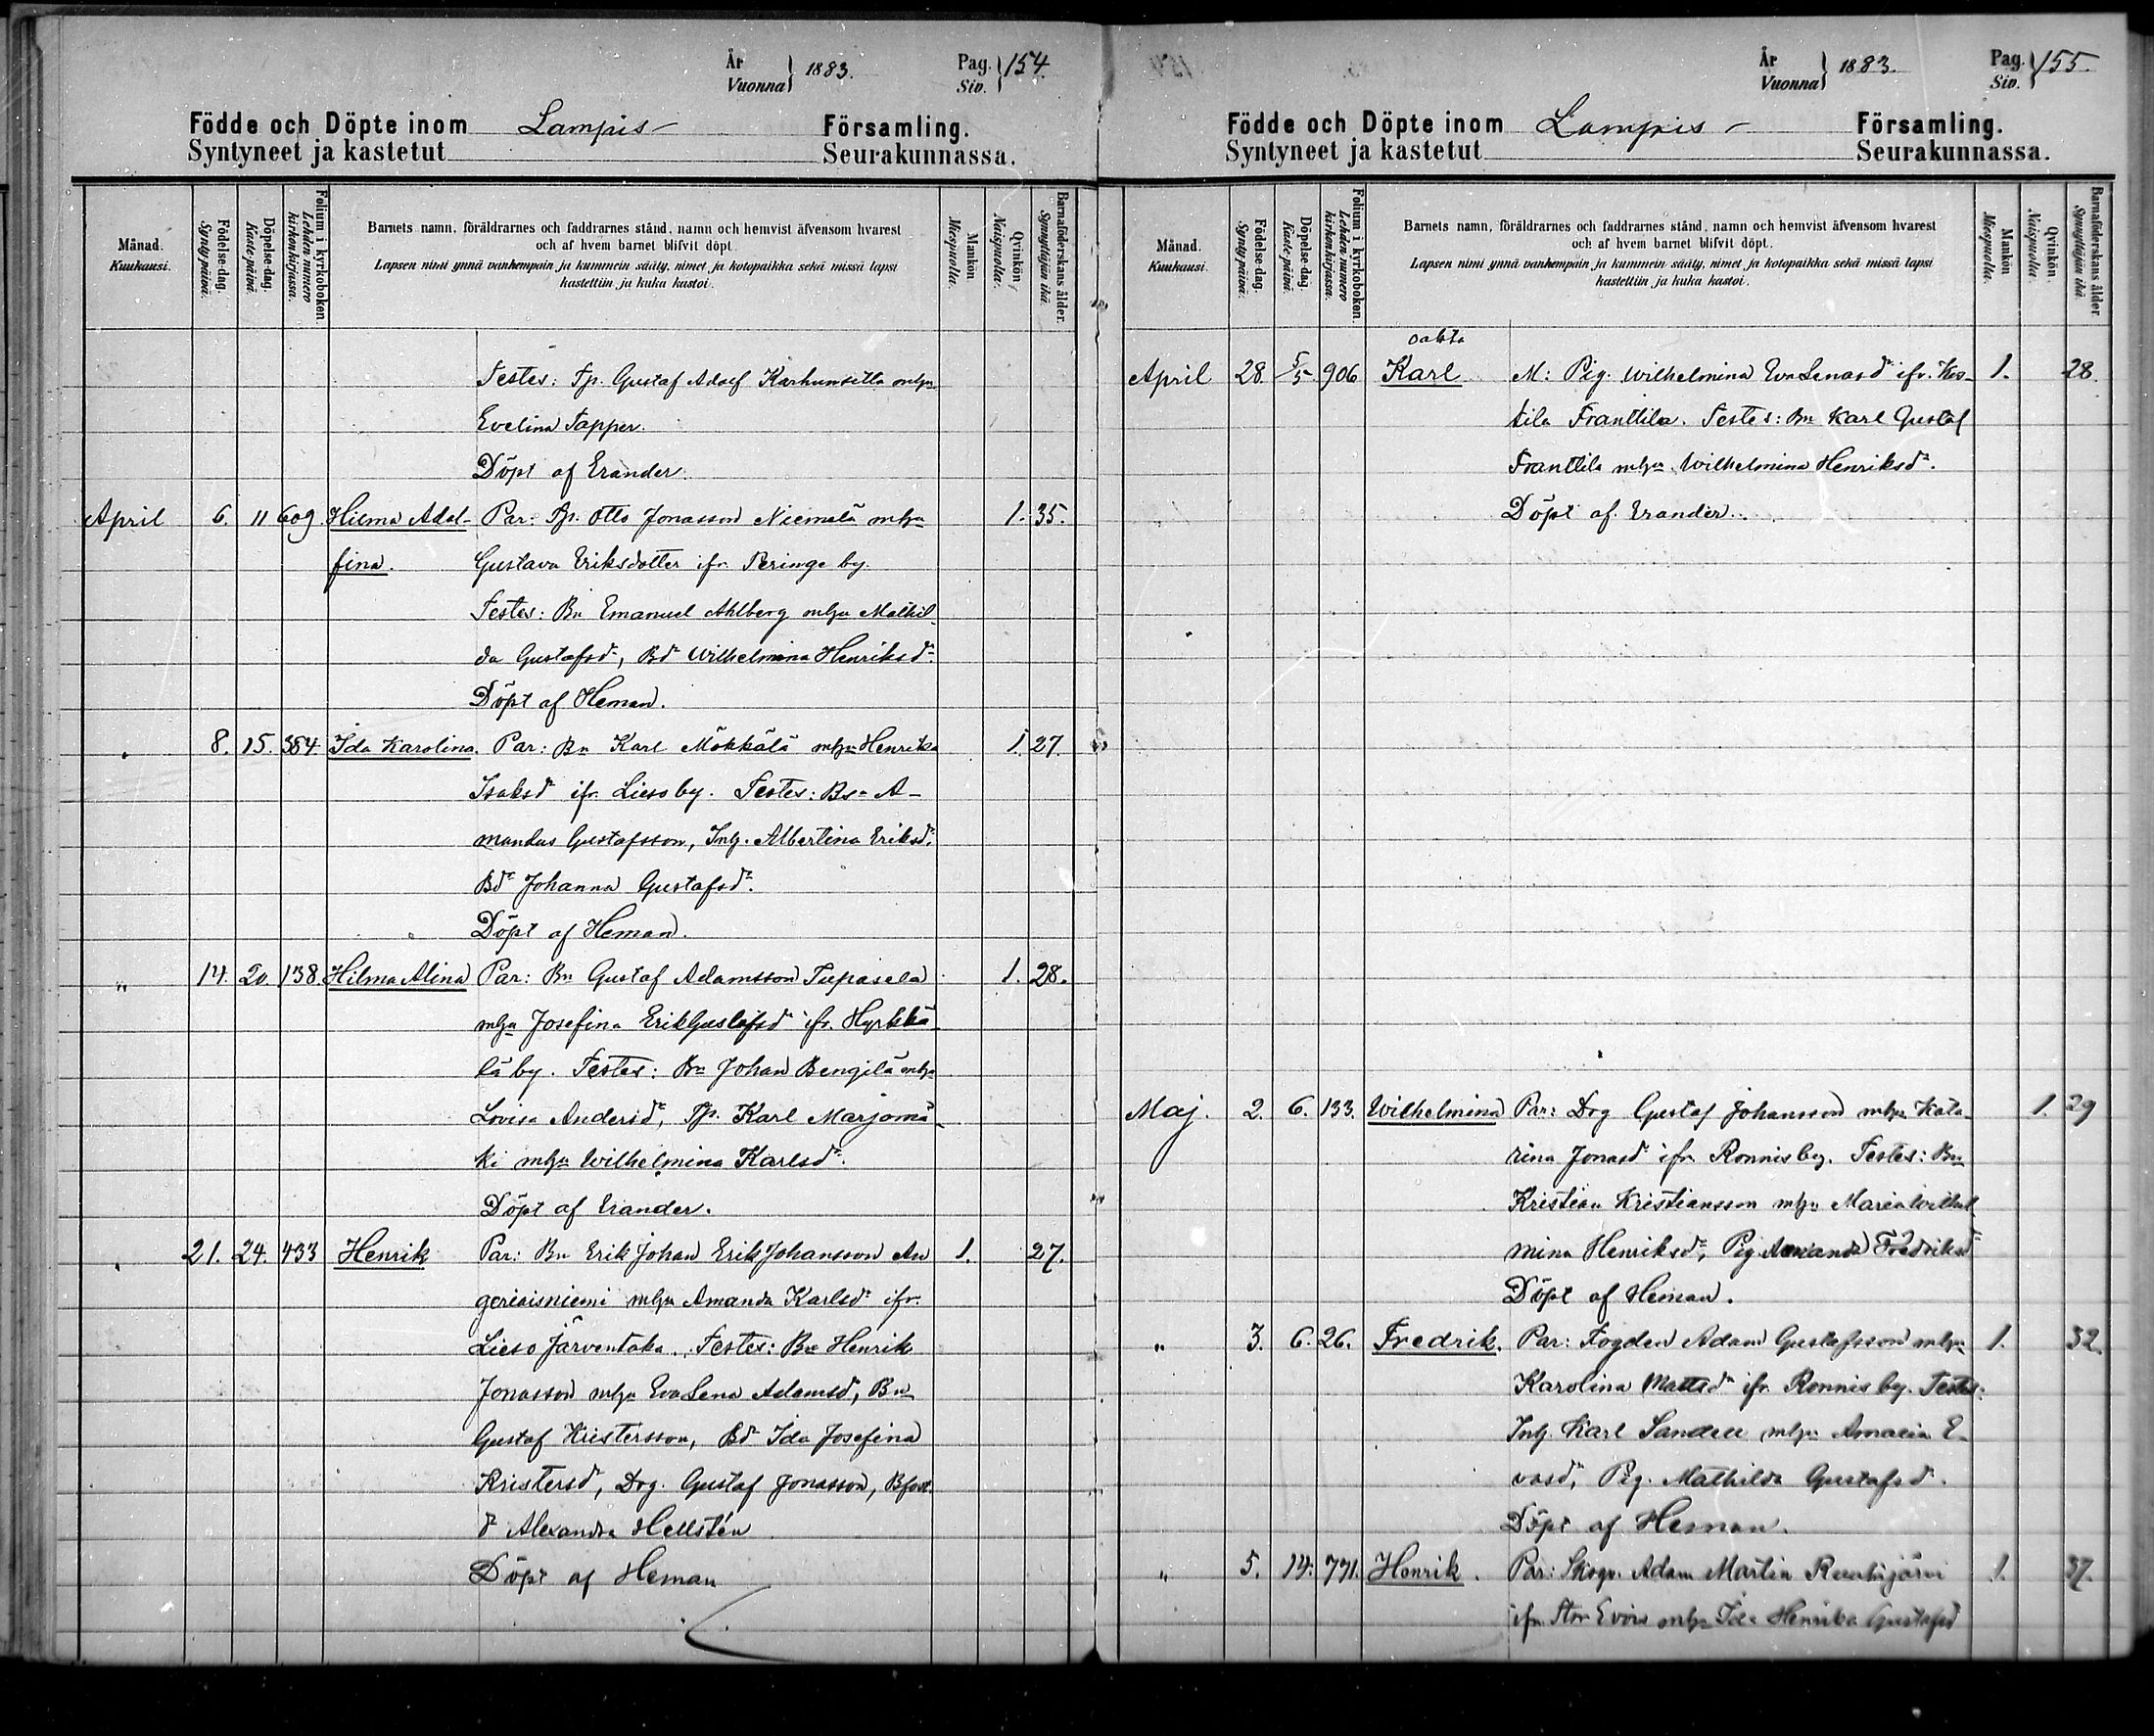 År
Vuonna } 1883.
Pag.
Siv. } 154.
Födde och Döpte inom Lampis Församling.
Syntyneet ja kastetut Seurakunnassa.
Månad.
Kuukausi.
Födelse-dag.
Synty-päivä.
Döpelse-dag.
Kaste-päivä.
Folium i kyrkoboken.
Lehden numero kirkonkirjassa.
Barnets namn, föräldrarnes och faddrarnes stånd, namn och hemvist äfvensom hvarest
och af hvem barnet blifvit döpt.
Lapsen nimi ynnä vanhempain ja kummein sääty, nimet ja kotopaikka sekä missä lapsi
kastettiin ja kuka kastoi.
Mankön.
Miespuolia.
Qvinkön.
Naispuolia.
Barnaföderskans ålder.
Synnyttäjän ikä.
Testes: Tp. Gustaf Adolf Karhunsilta mhu
Evelina Tapper.
Döpt af Erander.
April 6. 11 609 Hilma Adol- Par: Tp. Otto Jonasson Niemelä mhu 1. 35.
fina. Gustava Eriksdotter ifr. Teringe by.
Testes: Bn Emanuel Ahlberg mhu Mathil
da Gustafsdr, Bdr Wilhelmina Henriksdr.
Döpt af Heman.
" 8. 15. 384 Ida Karolina. Par: Bn Karl Mökkälä mhu Henrika 1. 27.
Isaksdr ifr. Lieso by. Testes: Bsn A-
mandus Gustafsson, Inh. Albertina Eriksdr.
Bdr Johanna Gustafsdr.
Döpt af Heman.
" 14. 20. 138. Hilma Alina Par: Bn Gustaf Adamsson Tupasela 1. 28.
mhu Josefina ErikGustafsdr ifr. Hyrkkä
lä by. Testes: Bn Johan Bengilä mhu
Lovisa Andersdr, Tp. Karl Marjomä
ki mhu Wilhelmina Karlsdr.
Döpt af Erander.
" 21. 24. 433 Henrik Par: Bn Erik Johan Erik Johansson An 1. 27.
geriaisniemi mhu Amanda Karlsdr ifr.
Lieso Järventaka. Testes: Bn Henrik
Jonasson mhu Eva Lena Adamsd, Bn
Gustaf Kristersson, Bdr Ida Josefina
Kristersd, Drg. Gustaf Jonasson,
Alexandra Hellstén
Döpt af Heman
År
Vuonna } 1883.
Pag.
Siv. } 155.
Födde och Döpte inom Lampis Församling.
Syntyneet ja kastetut Seurakunnassa.
Månad.
Kuukausi.
Födelse-dag.
Synty-päivä.
Döpelse-dag.
Kaste-päivä.
Folium i kyrkoboken.
Lehden numero kirkonkirjassa.
Barnets namn, föräldrarnes och faddrarnes stånd, namn och hemvist äfvensom hvarest
och af hvem barnet blifvit döpt.
Lapsen nimi ynnä vanhempain ja kummein sääty, nimet ja kotopaikka sekä missä lapsi
kastettiin ja kuka kastoi.
Mankön
Miespuolia.
Qvinkön.
Naispuolia.
Barnaföderskans ålder.
Synnyttäjän ikä.
oäkta
April 28. 5/5 906 Karl M: Pig. Wilhelmina Eva Lenasdr ifr. Kos- 1. 28.
tila Franttila. Testes: Bn Karl Gustaf
Franttila mhu Wilhelmina Henriksdr.
Döpt af Erander.
Maj. 2. 6. 133. Wilhelmina Par: Drg Gustaf Johansson mhu Kata 1. 29
rina Jonasd ifr Ronnis by. Testes: Bn
Kristian Kristiansson mhu Maria Wilhel
mina Henriksdr, Pig Amanda Fredriksd
Döpt af Heman.
" 3. 6. 26. Fredrik. Par: Fogden Adam Gustafsson mhu 1. 32.
Karolina Mattsdr ifr Ronnis by. Testes:
Inh. Karl Sandell mhu Amalia E-
vasd, Pig. Mathilda Gustafsdr.
Döpt af Heman.
" 5. 14. 771. Henrik. Par: Skogv. Adam Martin 1. 37.
ifr Stor Evois mhu Ida Henrika Gustafsd